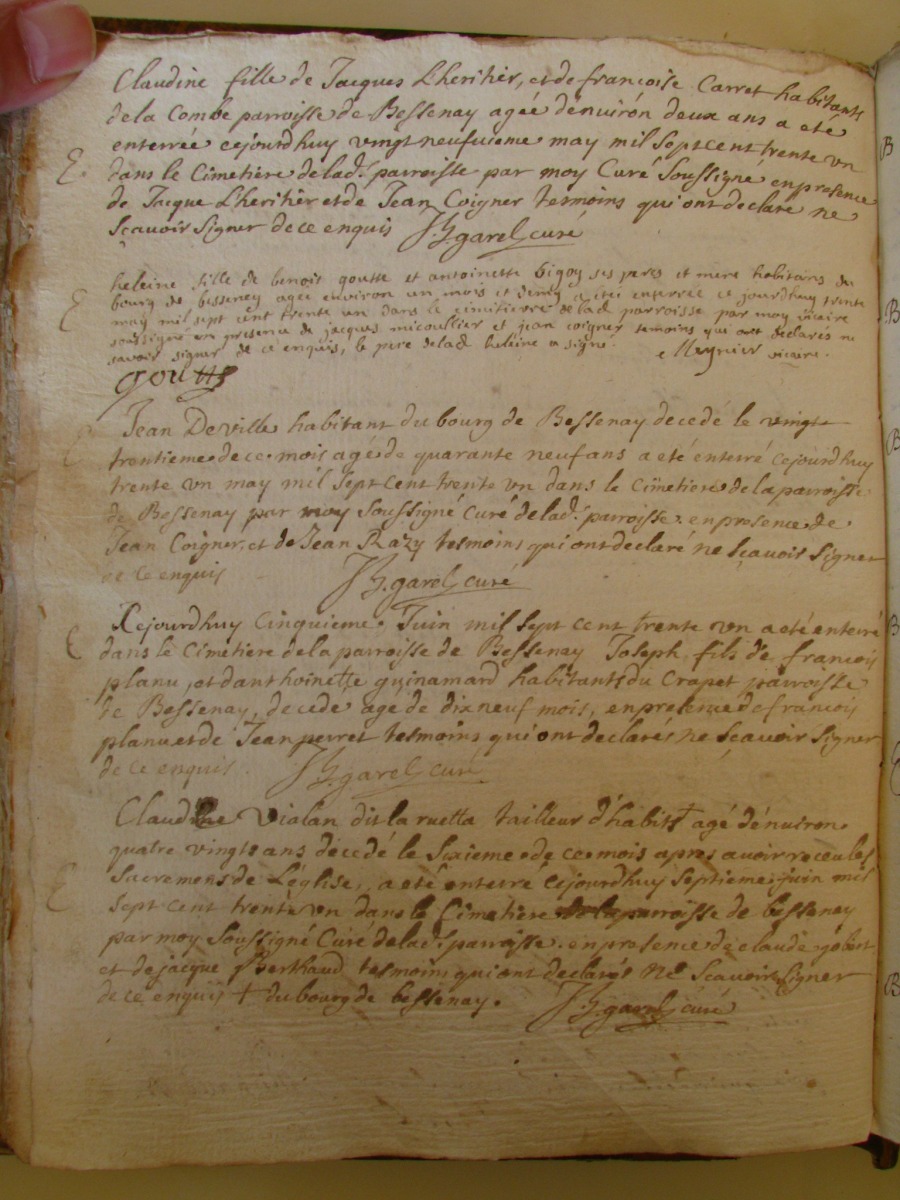 Claudine fille de Jacques Lheritier, et de francoise Carret habitants
de la Combe parroisse de Bessenay agée dénuirón deux ans a eté
enterrée cejourdhuy vingtneufuieme may mil sept cent trente vn
E. dans le Cimetiere de lad. parroisse par moy Curé Soussigné enpresence
de Jacque Lheritier et de Jean Coigner tesmoins qui ont declaré ne
Scavoir Signer de ce enquis J B. garel curé
heleine fille de benoit goutte et antoinette bigoy ses pere et mere habitans du
E bourg de bessenay agee environ un mois et demy a étéi enterrée ce jourdhuy trente
may mil sept cent trente un dans le cimitierre de lad parroisse par moy vicaire
soussigné en presence de jacques micoullier et jean coigner temoins qui ont declarés ne
savoir signer de ce enquis, le pere de lad heleine a signé. Meynier vicaire.
goutte
Jean Deville habitant du bourg de Bessenay decedé le vingt
E trentieme de ce mois agé de quarante neuf ans a eté enterré cejourdhuy
trente vn may mil Sept cent trente vn dans le Cimetiere de la parroisse
de Bessenay par moy Soussigné Curé de lad. parroisse. enpresence de
Jean Coigner, et de Jean Razy tesmoins qui ont declaré ne Sçavoir Signer
de ce enquis J B. garel curé
Cejourdhuy Cinquieme Juin mil Sept cent trente vn a eté enterré
E dans le Cimetiere de la parroisse de Bessenay Joseph fils de francois
planu, et danthoinette guinamard habitants du Crapet parroisse
de Bessenay, decede agé de dix neuf mois, enpresence de francois
planu et de Jean perret tesmoins qui ont declarés ne Scavoir Signer
de ce enquis J B. garel curé
Claudine Vialan dit la ruetta tailleur d'habits + agé dénuiron
quatre vingts ans décedé le Sixieme de ce mois apres avoir receu les
E Sacremens de Léglise, a eté enterré cejourdhuy Septieme juin mil
sept cent trente vn dans le Cimetiere de la parroisse de bessenay
par moy Soussigné Curé de lad. parroisse. enpresence de claude gobert
et de jacque Berthaud tesmoins qui ont declarés ne Scavoir Signer
de ce enquis + du bourg de bessenay. J B. garel curé